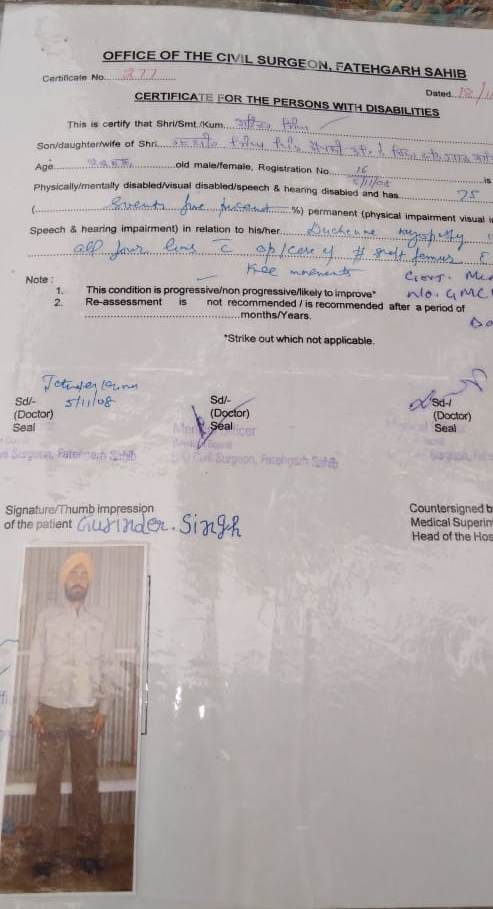 OFFICE OF THE CIVIL SURGEON, FATEHGARH SAHIB
Certificate No. 277
Dated 18/11
CERTIFICATE FOR THE PERSONS WITH DISABILITIES
This is certify that Shri/Smt./Kum.
Son/daughter/wife of Shri.
Age old male/female, Registration No. 16 5/11/08 is
Physically/mentally disabled/visual disabled/speech & hearing disabled and has 75
( Seventy five percent %) permanent (physical impairment visual i
Speech & hearing impairment) in relation to his/her Duchenne
all four limb c op/case of # shaft femur c
Knee movements Govt.
No. GMC
Note :
1. This condition is progressive/non progressive/likely to improve*
2. Re-assessment is not recommended / is recommended after a period of
months/Years.
*Strike out which not applicable.
5/11/08
Sd/- Sd/- Sd-/
(Doctor) (Doctor) (Doctor)
Seal Seal Seal
Surgeon, Fatehgarh Sahib Civil Surgeon, Fatehgarh Sahib Surgeon,
Signature/Thumb impression
of the patient Gurinder. Singh
Countersigned b
Medical Superin
Head of the Hos